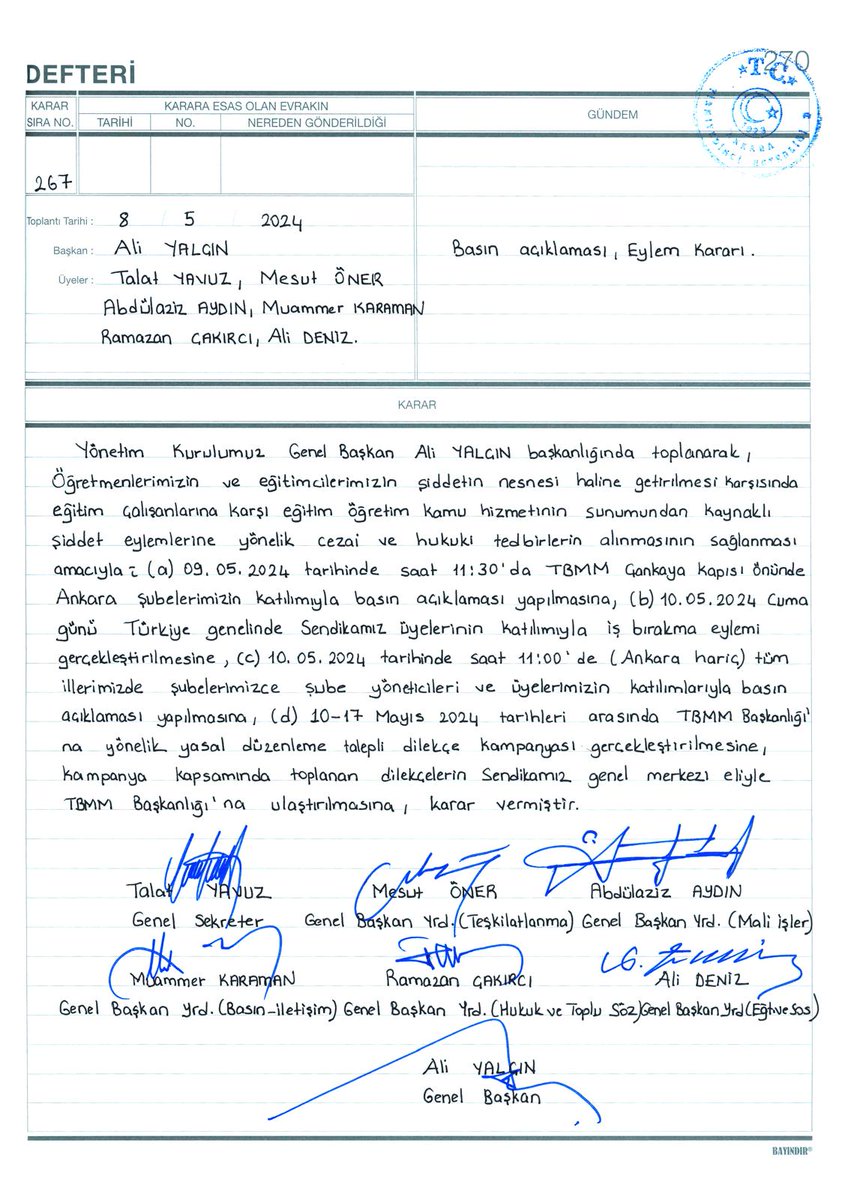 270
DEFTERİ
KARAR SIRA NO.
KARARA ESAS OLAN EVRAKIN
TARİHİ NO. NEREDEN GÖNDERİLDİĞİ
GÜNDEM
T.C.
1923
ANKARA
267
Toplantı Tarihi : 8 / 5 / 2024
Başkan : Ali YALÇIN
Üyeler : Talat YAVUZ, Mesut ÖNER
Abdülaziz AYDIN, Muammer KARAMAN
Ramazan ÇAKIRCI, Ali DENİZ.
Basın açıklaması, Eylem Kararı.
KARAR
Yönetim Kurulumuz Genel Başkan Ali YALÇIN başkanlığında toplanarak,
Öğretmenlerimizin ve eğitimcilerimizin şiddetin nesnesi haline getirilmesi karşısında
eğitim çalışanlarına karşı eğitim öğretim kamu hizmetinin sunumundan kaynaklı
şiddet eylemlerine yönelik cezai ve hukuki tedbirlerin alınmasının sağlanması
amacıyla : (a) 09.05.2024 tarihinde saat 11:30'da TBMM Çankaya Kapısı önünde
Ankara şubelerimizin katılımıyla basın açıklaması yapılmasına, (b) 10.05.2024 Cuma
günü Türkiye genelinde Sendikamız üyelerinin katılımıyla iş bırakma eylemi
gerçekleştirilmesine, (c) 10.05.2024 tarihinde saat 11:00'de (Ankara hariç) tüm
illerimizde şubelerimizce şube yöneticileri ve üyelerimizin katılımlarıyla basın
açıklaması yapılmasına, (d) 10-17 Mayıs 2024 tarihleri arasında TBMM Başkanlığı'
na yönelik yasal düzenleme talepli dilekçe kampanyası gerçekleştirilmesine,
kampanya kapsamında toplanan dilekçelerin Sendikamız genel merkezi eliyle
TBMM Başkanlığı'na ulaştırılmasına, karar vermiştir.
Talat YAVUZ Mesut ÖNER Abdülaziz AYDIN
Genel Sekreter Genel Başkan Yrd. (Teşkilatlanma) Genel Başkan Yrd. (Mali işler)
Muammer KARAMAN Ramazan ÇAKIRCI Ali DENİZ
Genel Başkan Yrd. (Basın-iletişim) Genel Başkan Yrd. (Hukuk ve Toplu Söz) Genel Başkan Yrd (Eğt ve Sos)
Ali YALÇIN
Genel Başkan
BAYINDIR®